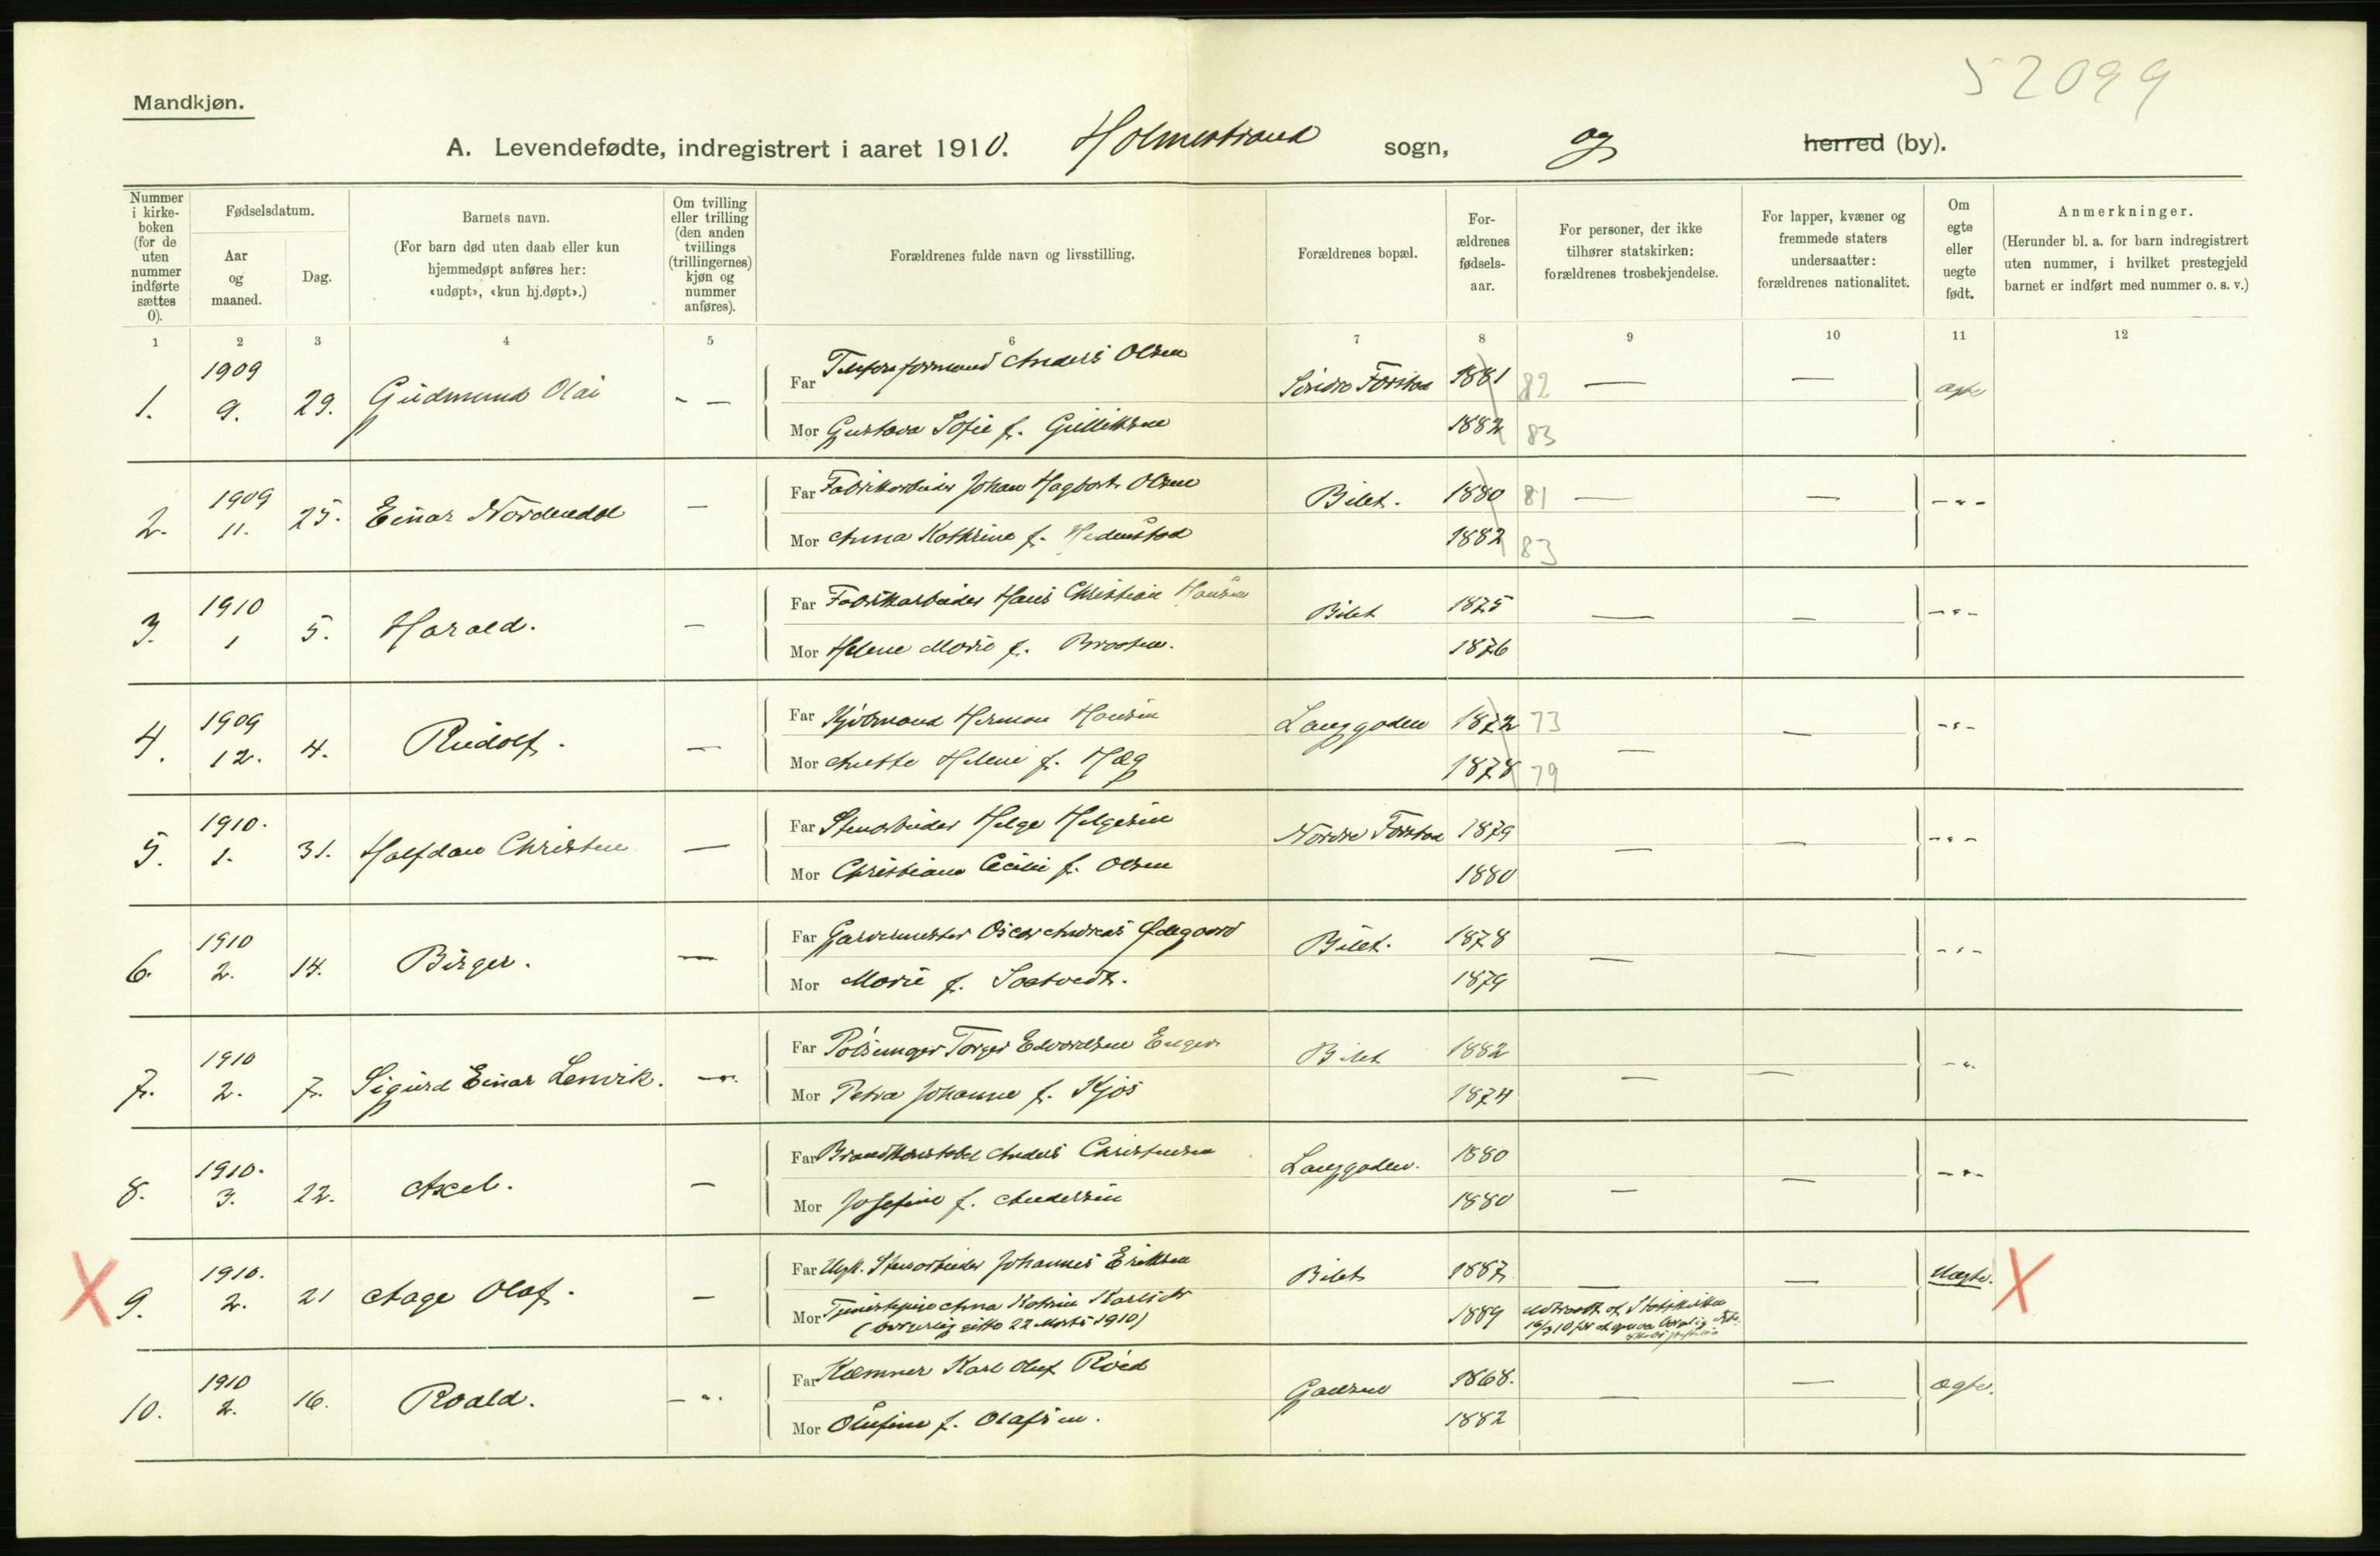 52099
Mandkjøn.
A. Levendefødte, indregistrert i aaret 1910. Holmestrand sogn, og herred (by).
Nummer i kirke-boken (for de uten nummer indførte sættes 0).
Fødselsdatum.
Aar og maaned.
Dag.
Barnets navn.
(For barn død uten daab eller kun hjemmedøpt anføres her: «udøpt», «kun hj.døpt».)
Om tvilling eller trilling (den anden tvillings (trillingernes) kjøn og nummer anføres).
Forældrenes fulde navn og livsstilling.
Forældrenes bopæl.
For-ældrenes fødsels-aar.
For personer, der ikke tilhører statskirken: forældrenes trosbekjendelse.
For lapper, kvæner og fremmede staters undersaatter: forældrenes nationalitet.
Om egte eller uegte født.
Anmerkninger.
(Herunder bl. a. for barn indregistrert uten nummer, i hvilket prestegjeld barnet er indført med nummer o. s. v.)
1 2 3 4 5 6 7 8 9 10 11 12
1. 1909 9. 29. Gudmund Olai - —
Far Telefonformand Anders Olsen Søndre Forstad 1881 82 — — ægte
Mor Gustava Sofie f. Gulliksen 1882 83
2. 1909 11. 25. Einar Nordendal —
Far Fabrikarbeider Johan Hagbart Olsen Bilet. 1880 81 — — -"-
Mor Anna Kathrine f. Hedenstad 1882 83
3. 1910 1 5. Harald. —
Far Fabrikarbeider Hans Christian Hansen Bilet 1875 — — -"-
Mor Helene Marie f. Braaten. 1876
4. 1909 12. 4. Rudolf. —
Far Kjøbmand Herman Hansen Langgaden 1872 73 — — -"-
Mor Anette Helene f. Hæg 1878 79
5. 1910. 1. 31. Halfdan Christen —
Far Stenarbeider Helge Helgesen Nordre Forstad 1879 — — -"-
Mor Christiane Cecilie f. Olsen 1880
6. 1910 2. 14. Birger. —
Far Garvermester Oscar Andreas Ødegaard Bilet. 1878 — — -"-
Mor Marie f. Sostvedt. 1879
7. 1910 2. 7. Sigurd Einar Lenvik. -"-
Far Pølsemager Torger Edvardsen Enger Bilet 1882 — — -"-
Mor Petra Johanne f. Kjøs 1874
8. 1910. 3. 22. Axel. —
Far Brandkonstabel Anders Christensen Langgaden. 1880 — — -"-
Mor Josefine f. Andersen 1880
X 9. 1910. 2. 21 Aage Olaf. —
Far Ungk. Stenarbeider Johannes Eriksen Bilet 1887 — — Uægte. X
Mor Tjenestepige Anna Katrine Karlsdt 1889 Udtraadt af Statskirken
(borgerlig gifte 22 Marts 1910) 16/3 10 for at
10. 1910 2. 16. Roald. -"-
Far Kæmner Karl Oluf Røed Gausen 1868. — — ægte.
Mor Olufine f. Olafsen. 1882